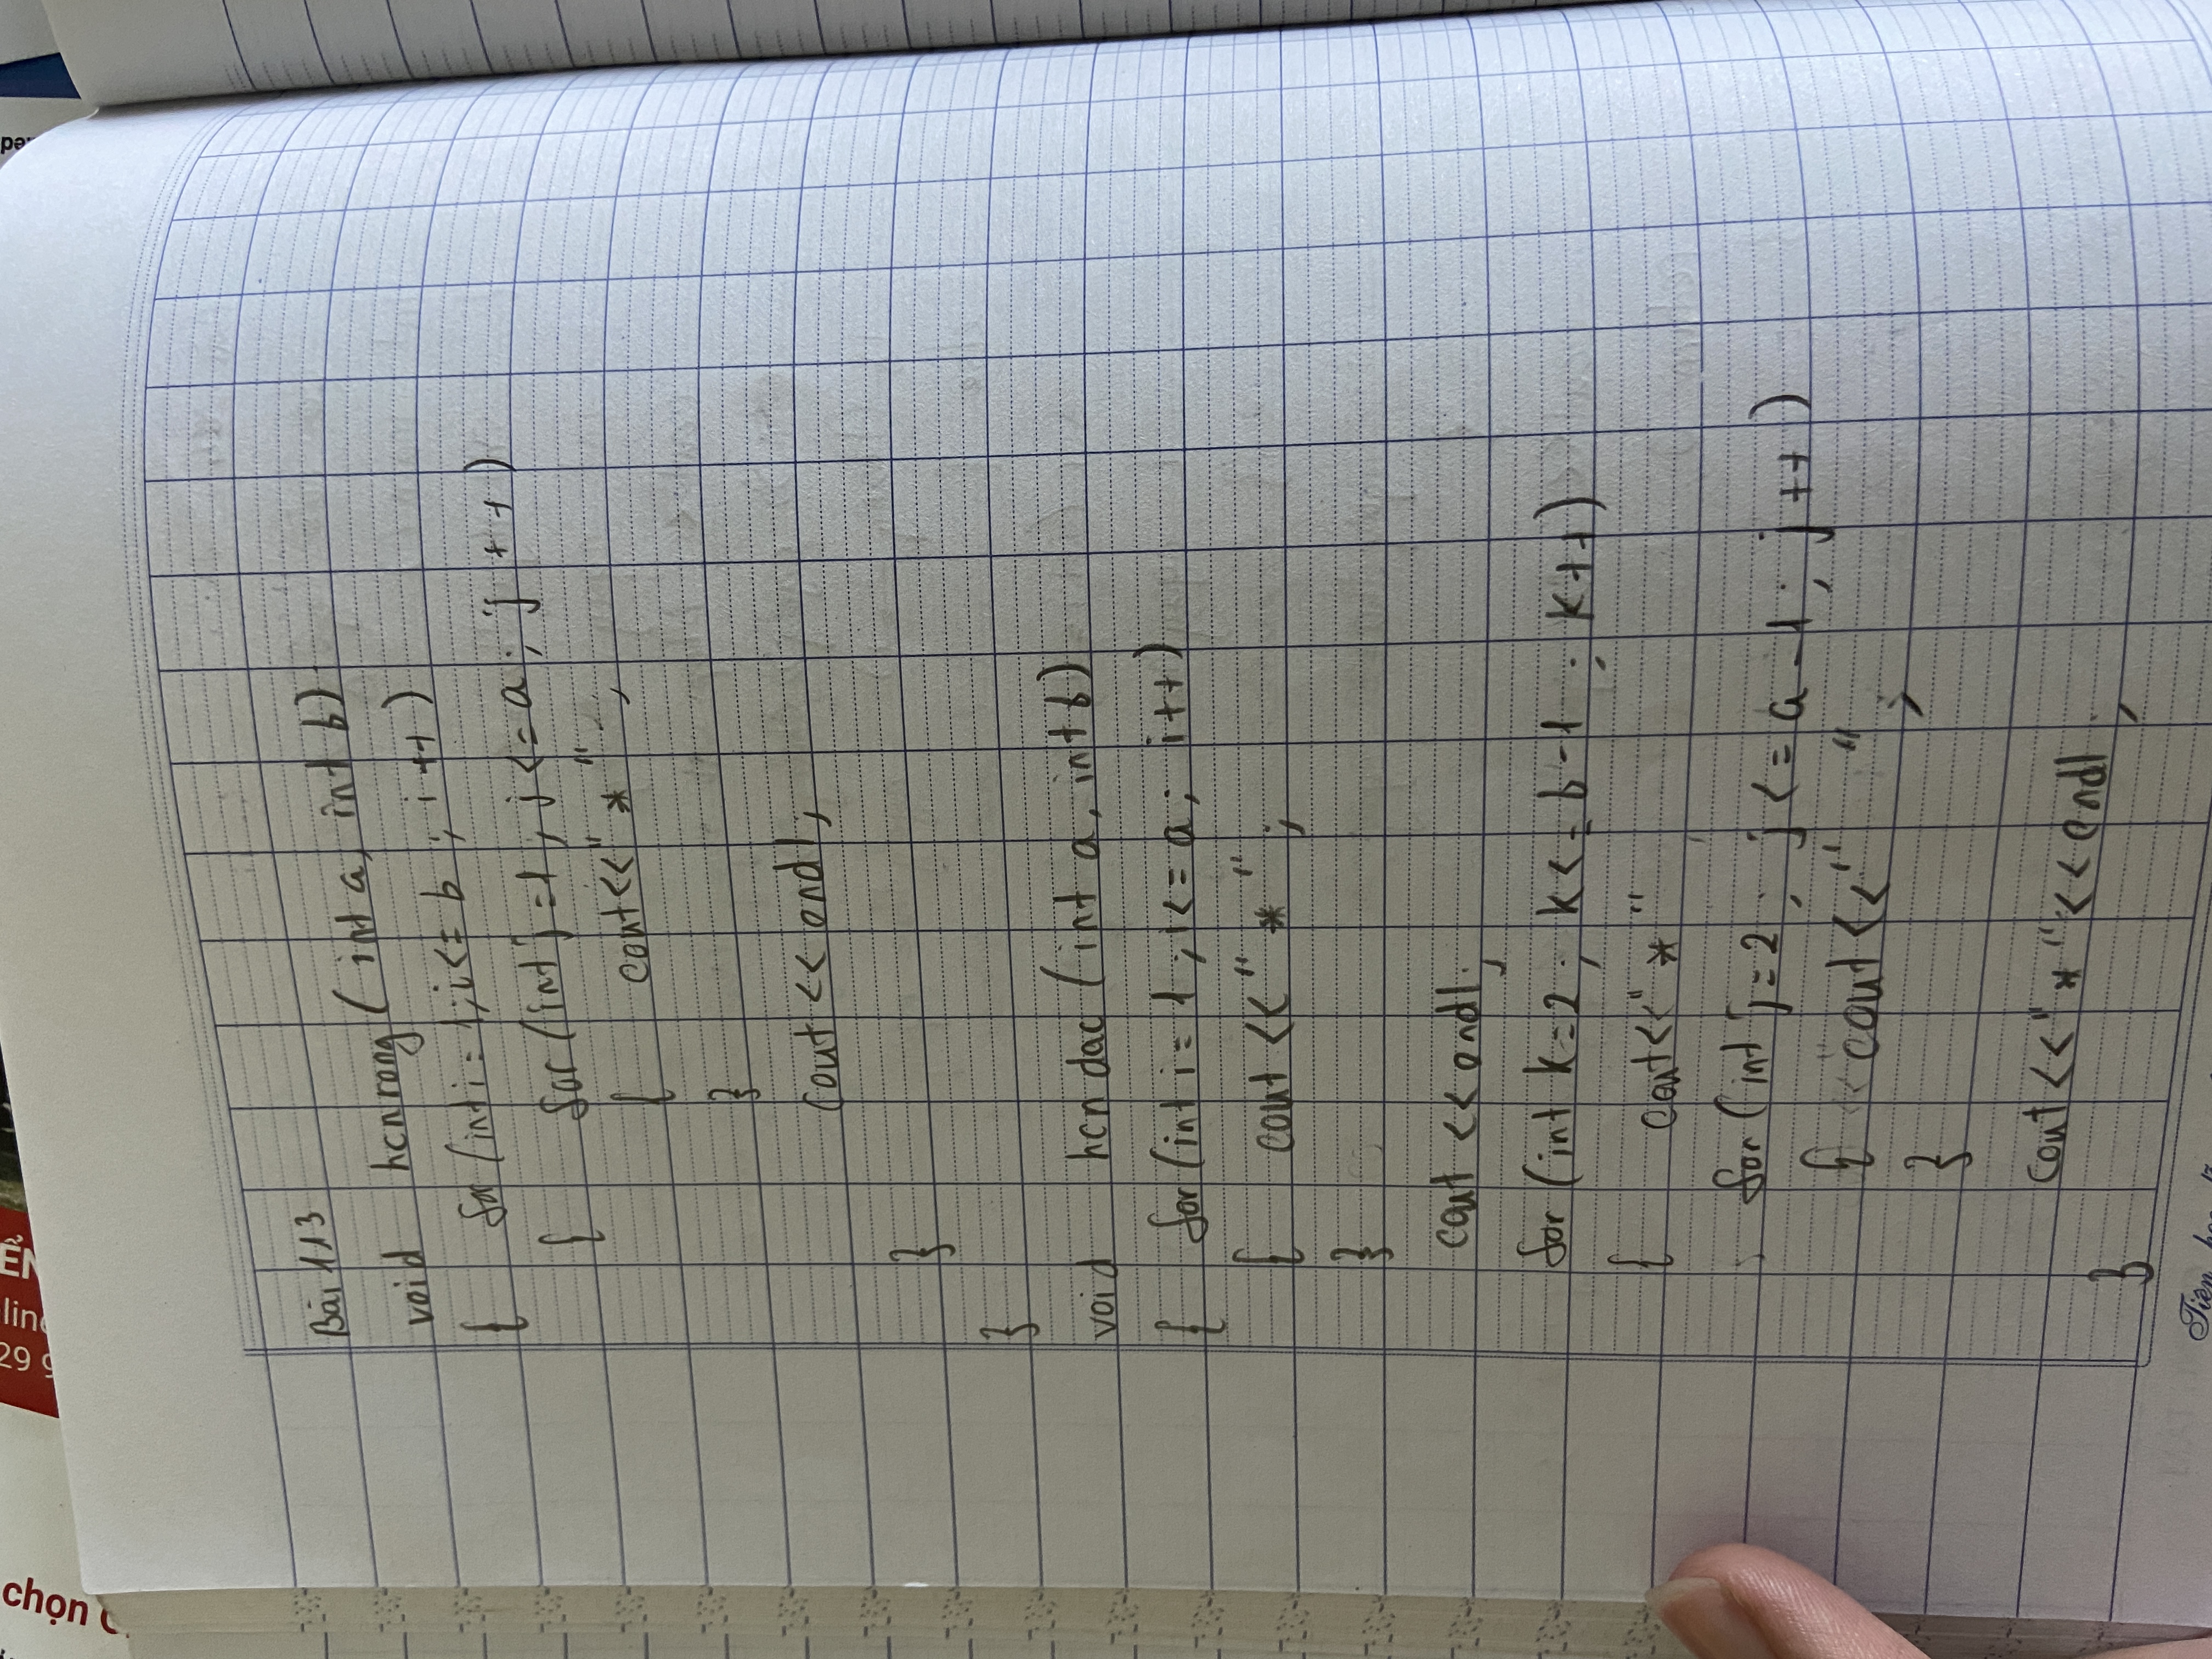 chọn
29
lin
ỄN
Bài 113
void hcnrong (int a, int b)
{ for (int i = 1; i <= b ; i ++ )
{ for (int j = 1; j <= a ; j ++ )
{ cout << " * " ;
}
cout << endl ;
}
}
void hcn dac (int a, int b)
{ for (int i = 1 ; i <= a ; i ++ )
{ cout << " * " ;
}
cout << endl ;
for (int k = 2 ; k <= b - 1 ; k ++ )
{ cout << " * "
for (int j = 2 ; j <= a - 1 ; j ++ )
{ cout << " " ;
}
cout << " * " << endl ;
}
Tiên học lễ